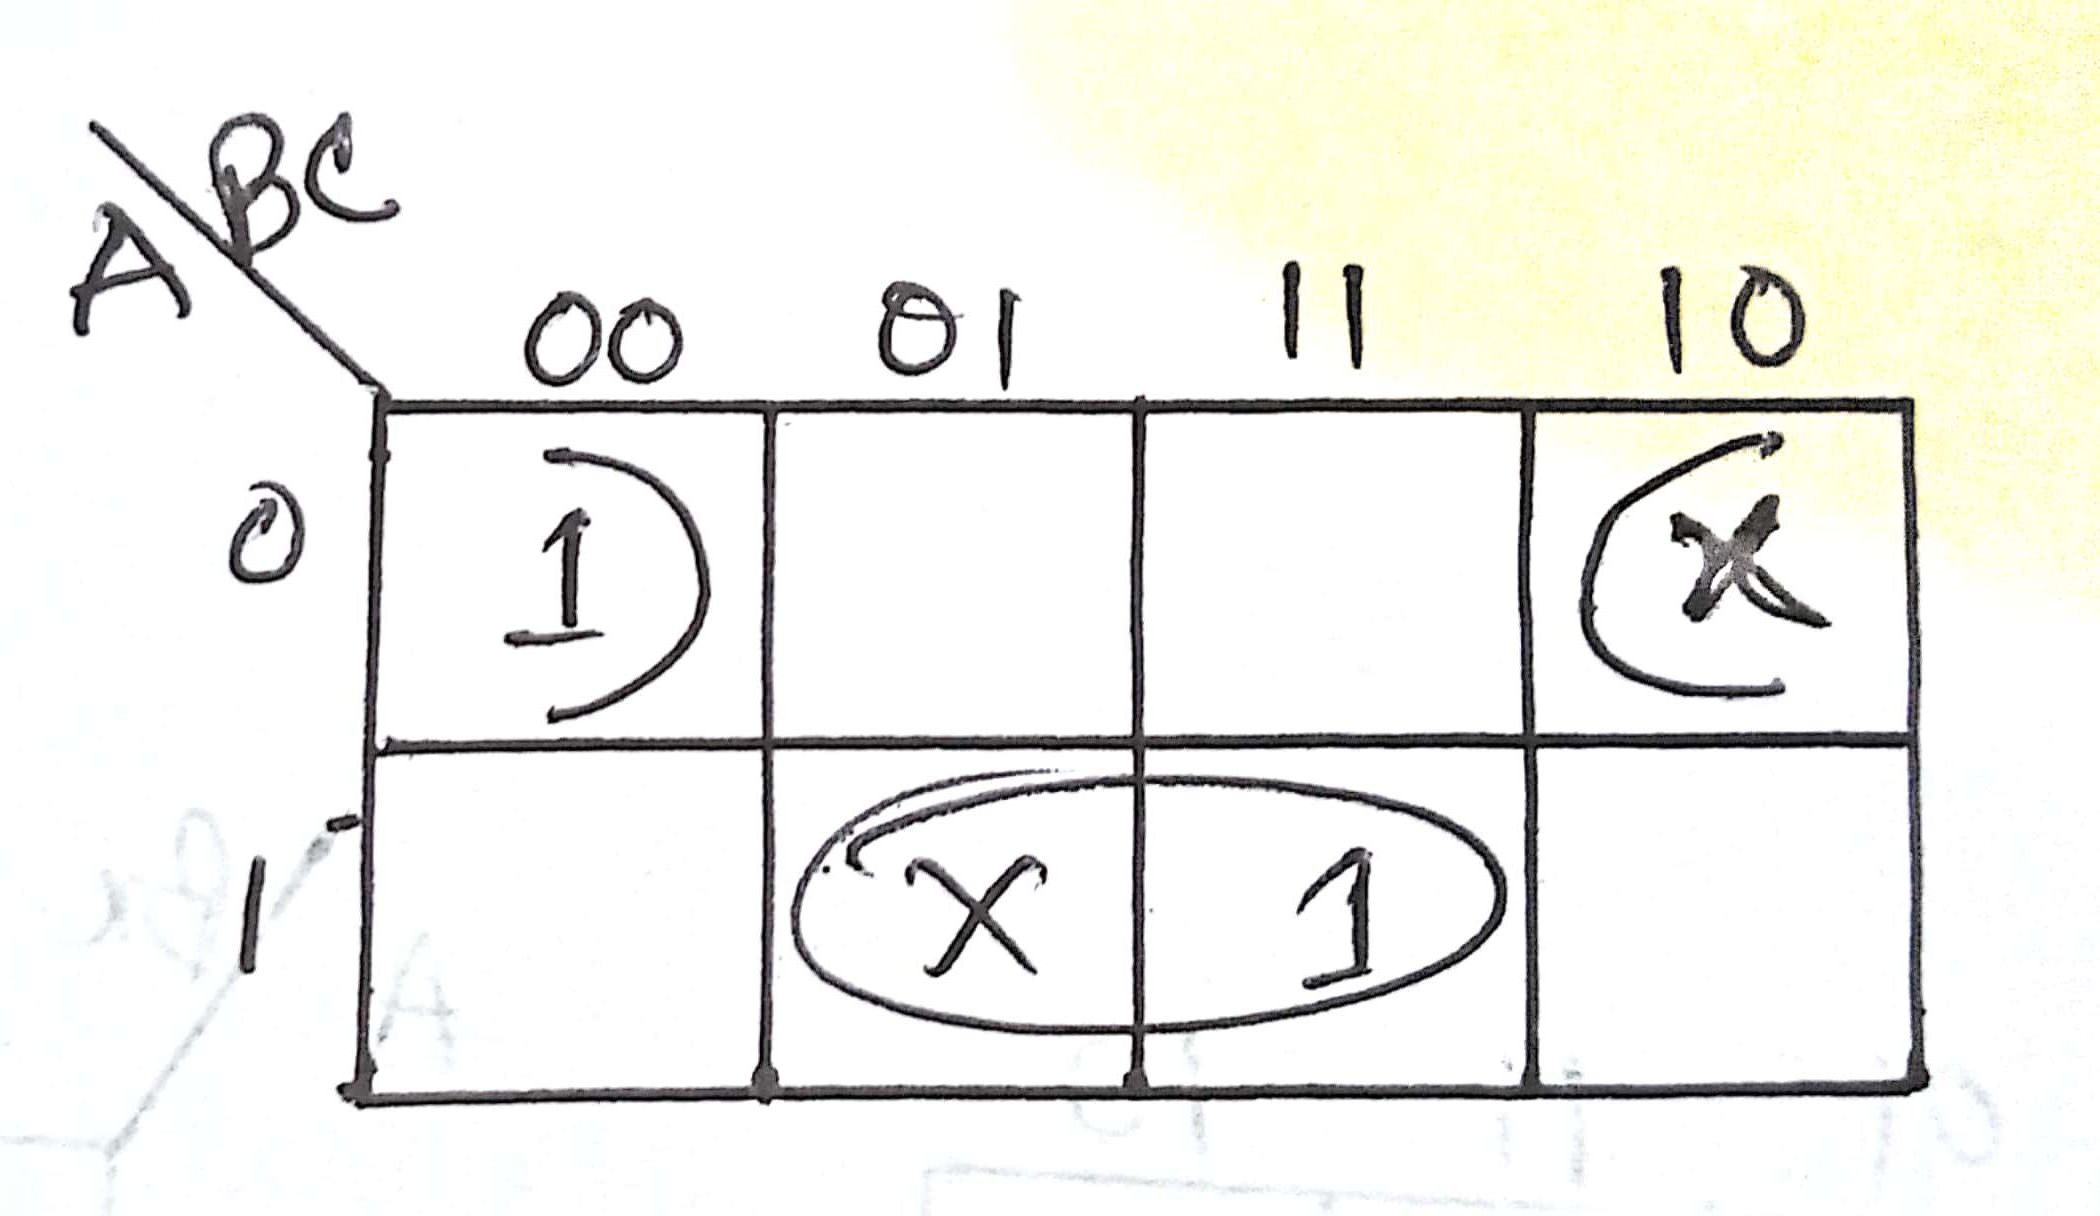 BC
A
00 01 11 10
0 1 X
1 X 1